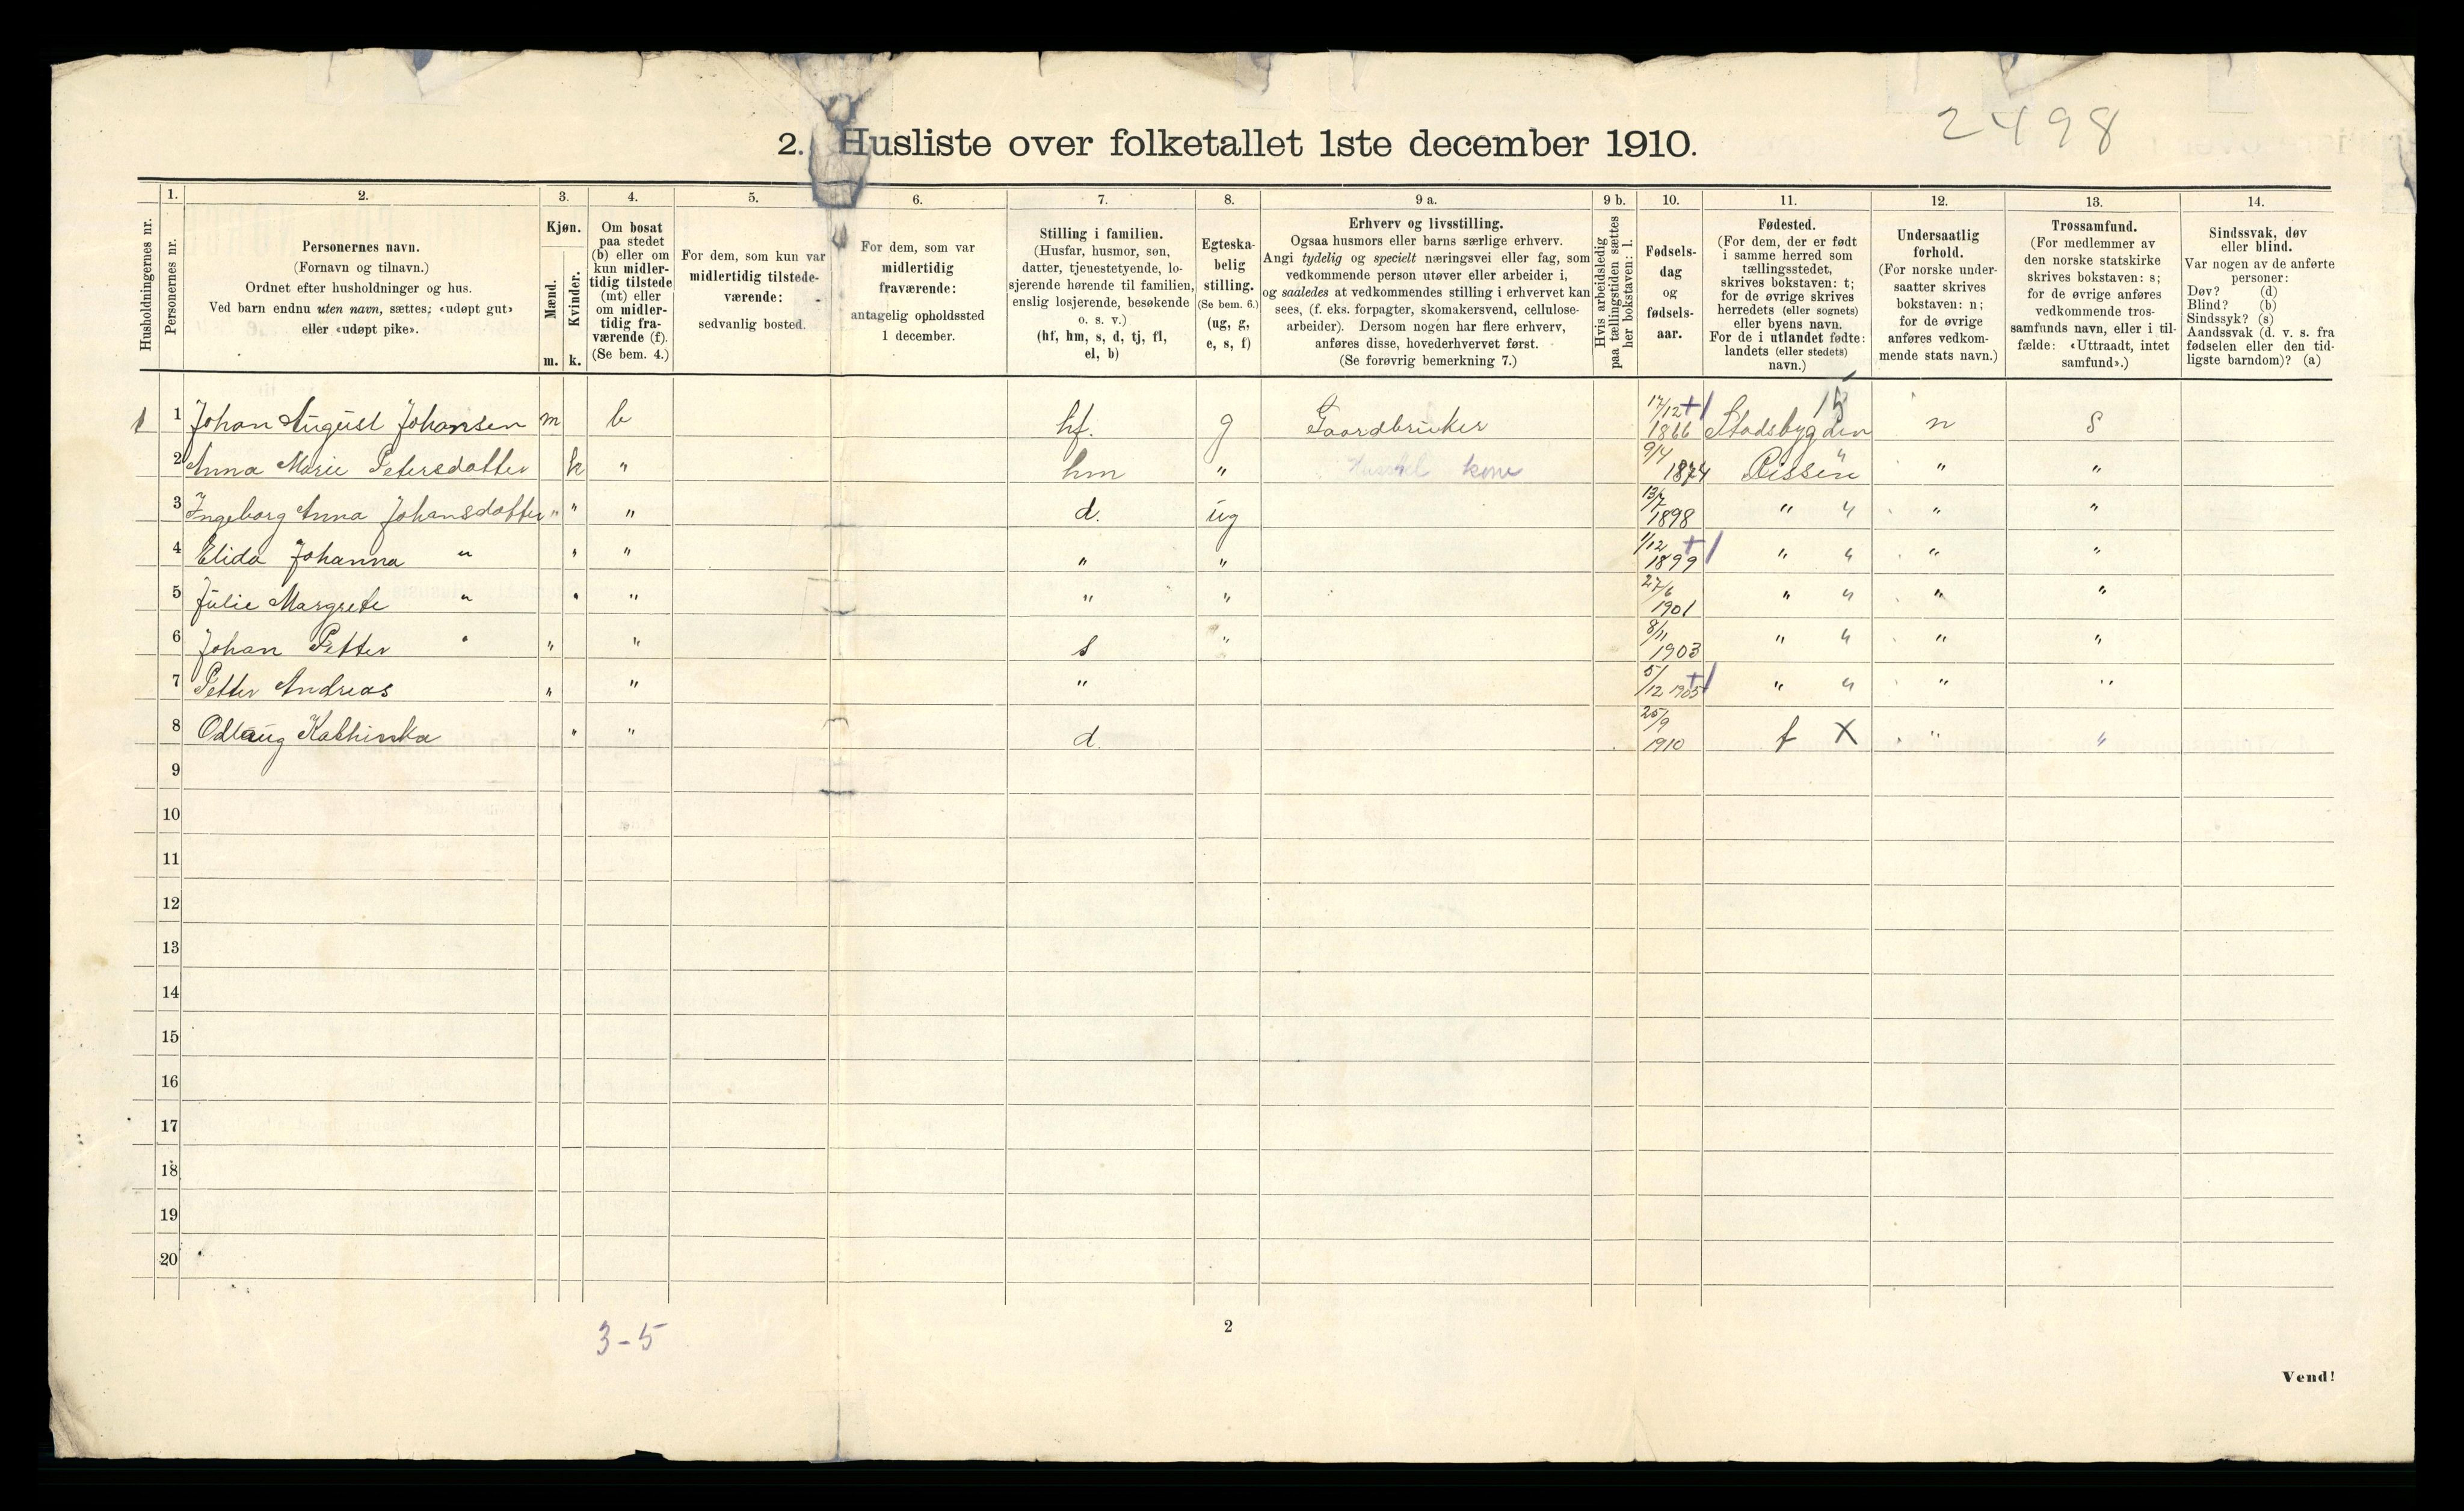 2498
2. Husliste over folketallet 1ste december 1910.
Husholdningernes nr.
1. Personernes nr.
2. Personernes navn.
(Fornavn og tilnavn.)
Ordnet efter husholdninger og hus.
Ved barn endnu uten navn, sættes: «udøpt gut»
eller «udøpt pike».
3. Kjøn.
Mænd. m.
Kvinder. k.
4. Om bosat
paa stedet
(b) eller om
kun midler-
tidig tilstede
(mt) eller
om midler-
tidig fra-
værende (f).
(Se bem. 4.)
5. For dem, som kun var
midlertidig tilstede-
værende:
sedvanlig bosted.
6. For dem, som var
midlertidig
fraværende:
antagelig opholdssted
1 december.
7. Stilling i familien.
(Husfar, husmor, søn,
datter, tjenestetyende, lo-
sjerende hørende til familien,
enslig losjerende, besøkende
o. s. v.)
(hf, hm, s, d, tj, fl,
el, b)
8. Egteska-
belig
stilling.
(Se bem. 6.)
(ug, g,
e, s, f)
9 a. Erhverv og livsstilling.
Ogsaa husmors eller barns særlige erhverv.
Angi tydelig og specielt næringsvei eller fag, som
vedkommende person utøver eller arbeider i,
og saaledes at vedkommendes stilling i erhvervet kan
sees, (f. eks. forpagter, skomakersvend, cellulose-
arbeider). Dersom nogen har flere erhverv,
anføres disse, hovederhvervet først.
(Se forøvrig bemerkning 7.)
9 b. Hvis arbeidsledig
paa tællingstiden sættes
her bokstaven: l.
10. Fødsels-
dag
og
fødsels-
aar.
11. Fødested.
(For dem, der er født
i samme herred som
tællingsstedet,
skrives bokstaven: t;
for de øvrige skrives
herredets (eller sognets)
eller byens navn.
For de i utlandet fødte:
landets (eller stedets)
navn.)
12. Undersaatlig
forhold.
(For norske under-
saatter skrives
bokstaven: n;
for de øvrige
anføres vedkom-
mende stats navn.)
13. Trossamfund.
(For medlemmer av
den norske statskirke
skrives bokstaven: s;
for de øvrige anføres
vedkommende tros-
samfunds navn, eller i til-
fælde: «Uttraadt, intet
samfund».)
14. Sindssvak, døv
eller blind.
Var nogen av de anførte
personer:
Døv? (d)
Blind? (b)
Sindssyk? (s)
Aandssvak (d. v. s. fra
fødselen eller den tid-
ligste barndom)? (a)
1 1 Johan August Johansen m b hf. g Gaardbruker 17/12 1866 Stadsbygden n S
2 Anna Marie Petersdatter k " hm " kone 9/4 1874 Rissen " "
3 Ingeborg Anna Johansdatter " " " d. ug 13/7 1898 " " " "
4 Elida Johanna " " " " " 1/12 1899 " " " "
5 Julie Margrete " " " " " 27/6 1901 " " " "
6 Johan Petter " " " s " 8/11 1903 " " " "
7 Petter Andreas " " " 5/12 1905 " " " "
8 Odlaug Kathinka " " d. 25/9 1910 t X " "
9
10
11
12
13
14
15
16
17
18
19
20
3-5
2
Vend!